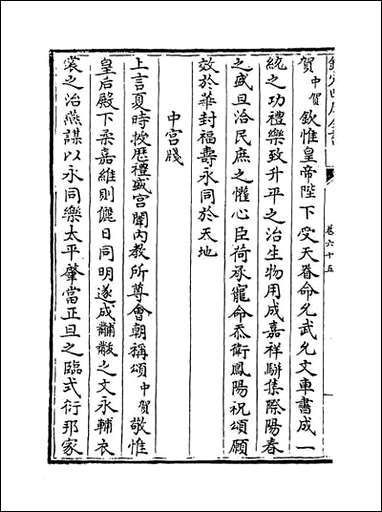 欽定四庫全書
卷六十五
賀中賀欽惟皇帝陛下受天眷命允武允文車書成一
統之功禮樂致升平之治生物用成嘉祥駢集際陽春
之盛旦洽民庶之懽心臣荷承寵命忝衛鳳陽祝頌願
效於華封福壽永同於天地
中宮牋
上言夏時授歷禮盛宮闈内教所尊會朝稱頌中賀敬惟
皇后殿下柔嘉維則儷日同明遂成黼黻之文永輔衣
裳之治燕謀以永同樂太平肇當正旦之臨式衍邦家